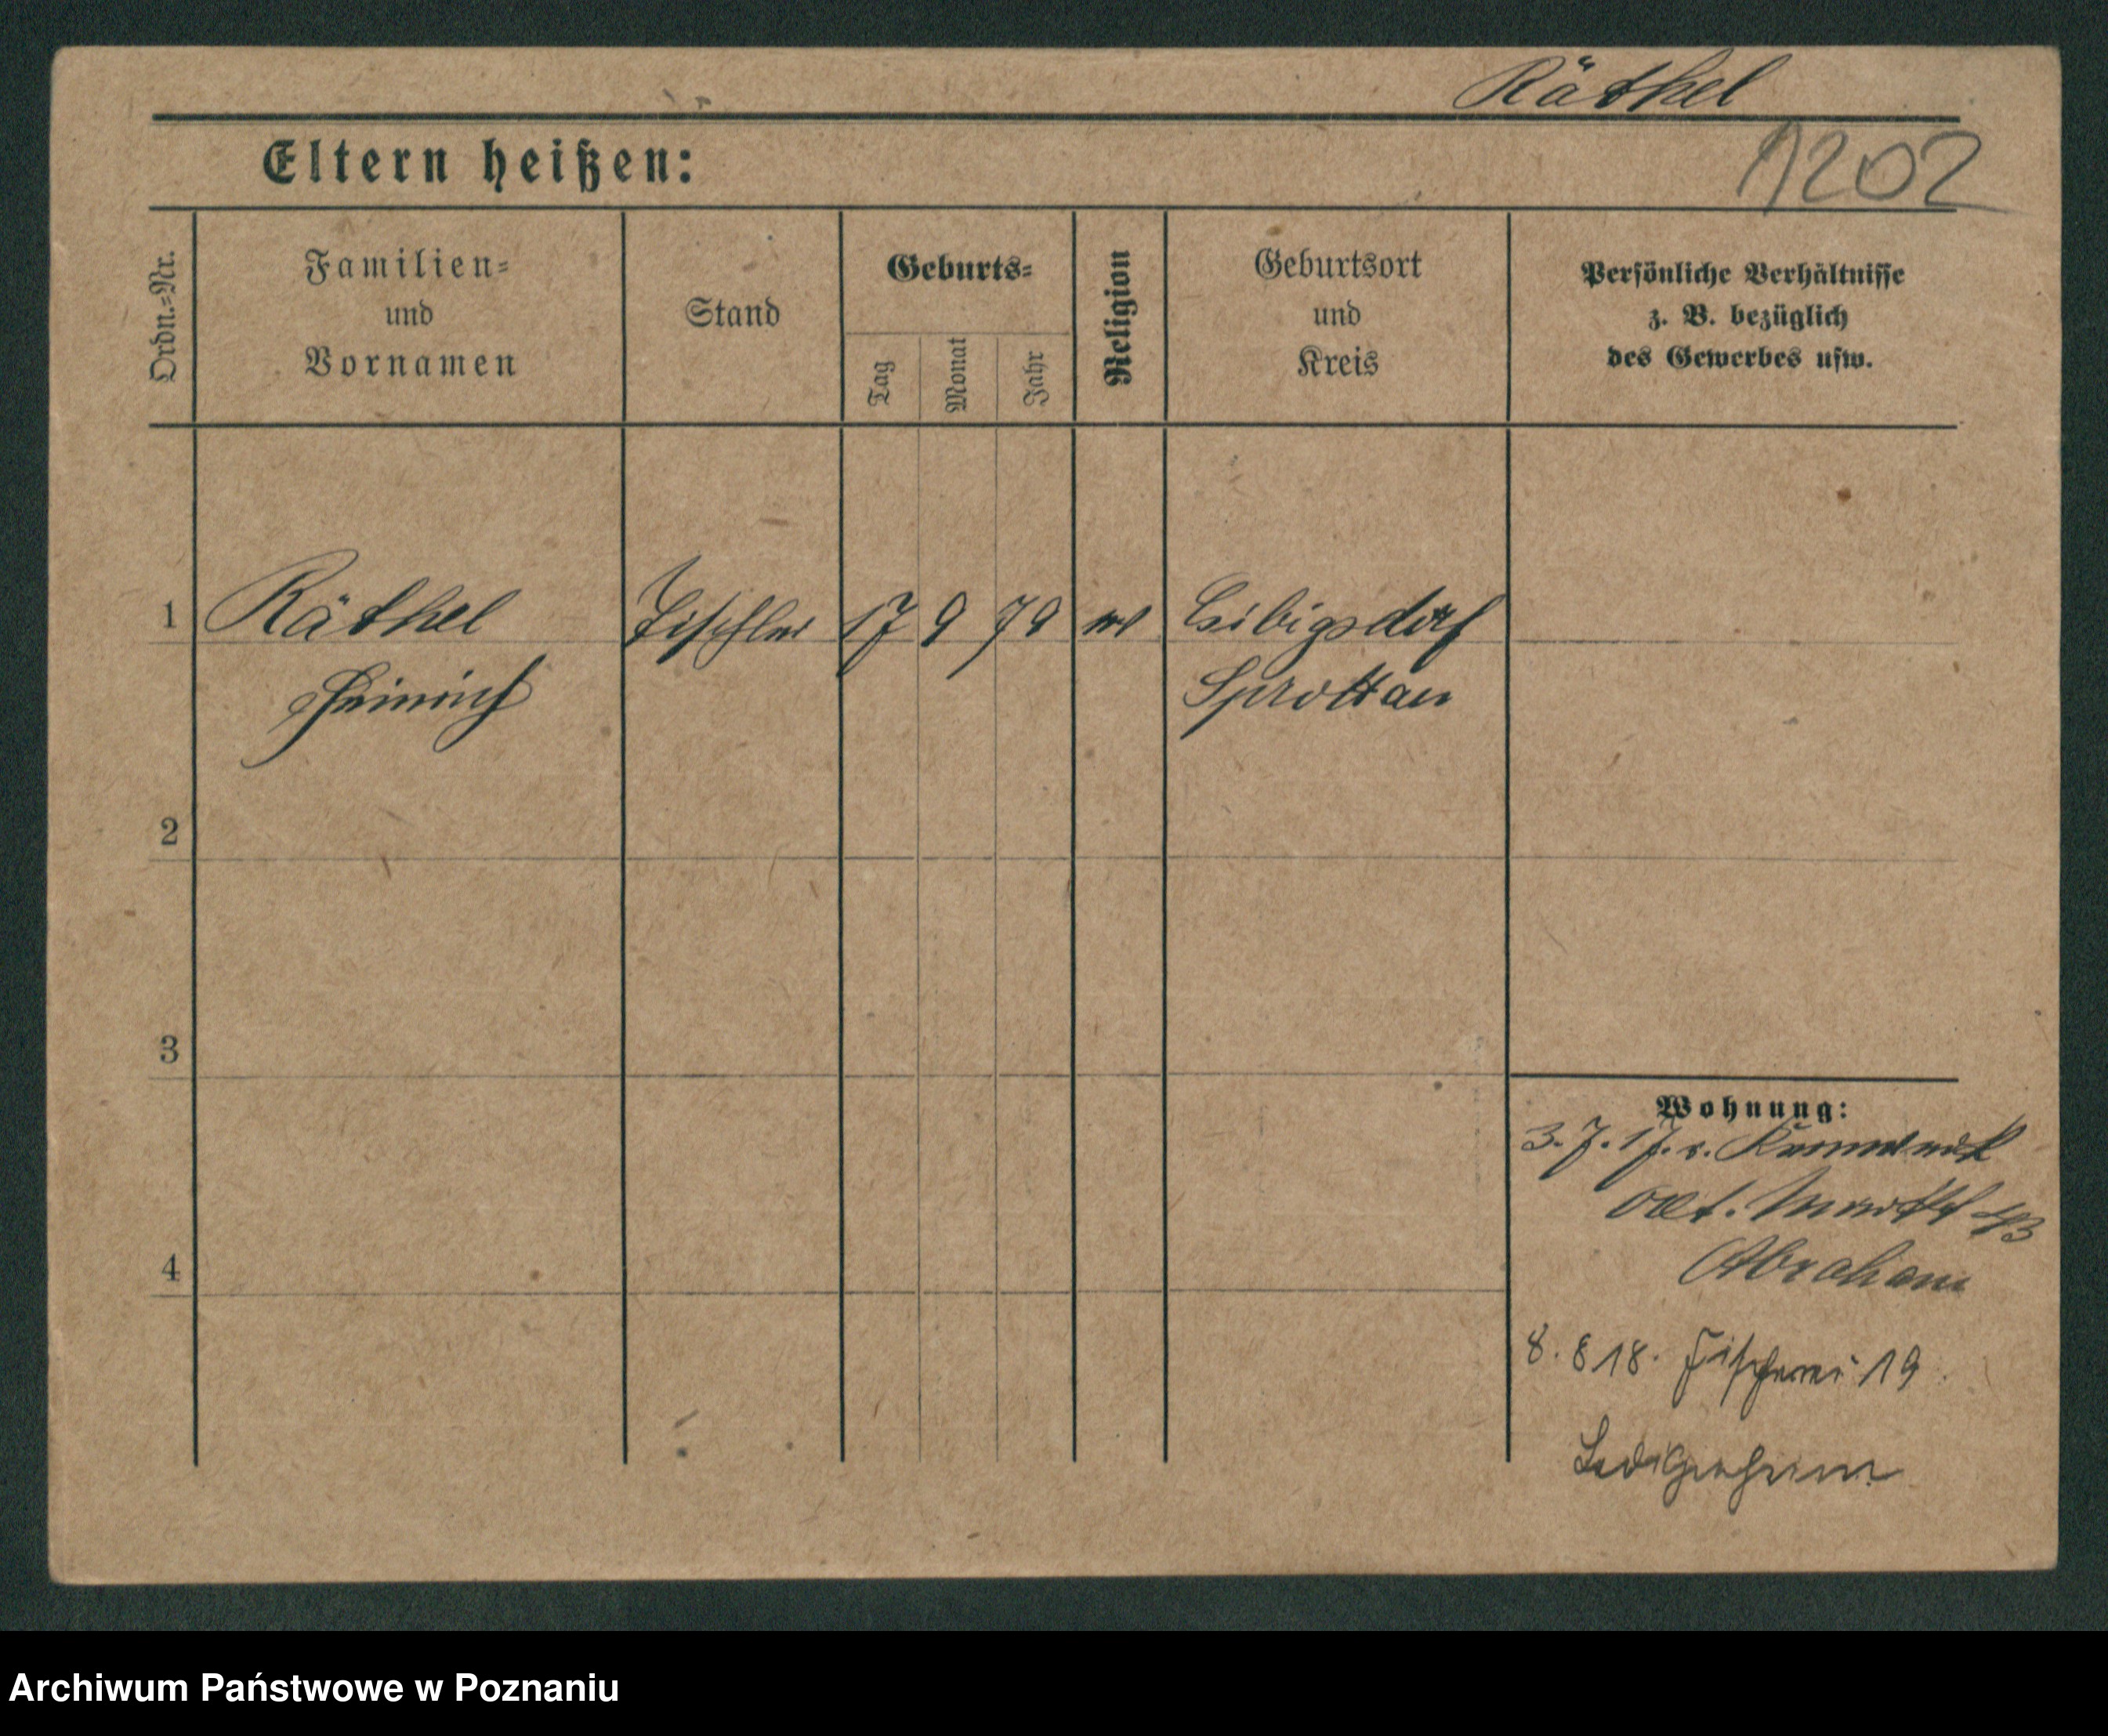 Räthel
1202
Eltern heißen:
Ordn.=Nr.
Familien=
und
Vornamen
Stand
Geburts=
Tag
Monat
Jahr
Religion
Geburtsort
und
Kreis
Persönliche Verhältnisse
z. B. bezüglich
des Gewerbes usw.
1 Räthel Tischler 17 9 79 ev Leibigsdorf
Heinrich Sprottau
2
3
4
Wohnung:
3. 7. 17. v.
Alt. Markt
Abraham
8. 8 18. Fischerei 19.
Ledigenheim
Archiwum Państwowe w Poznaniu